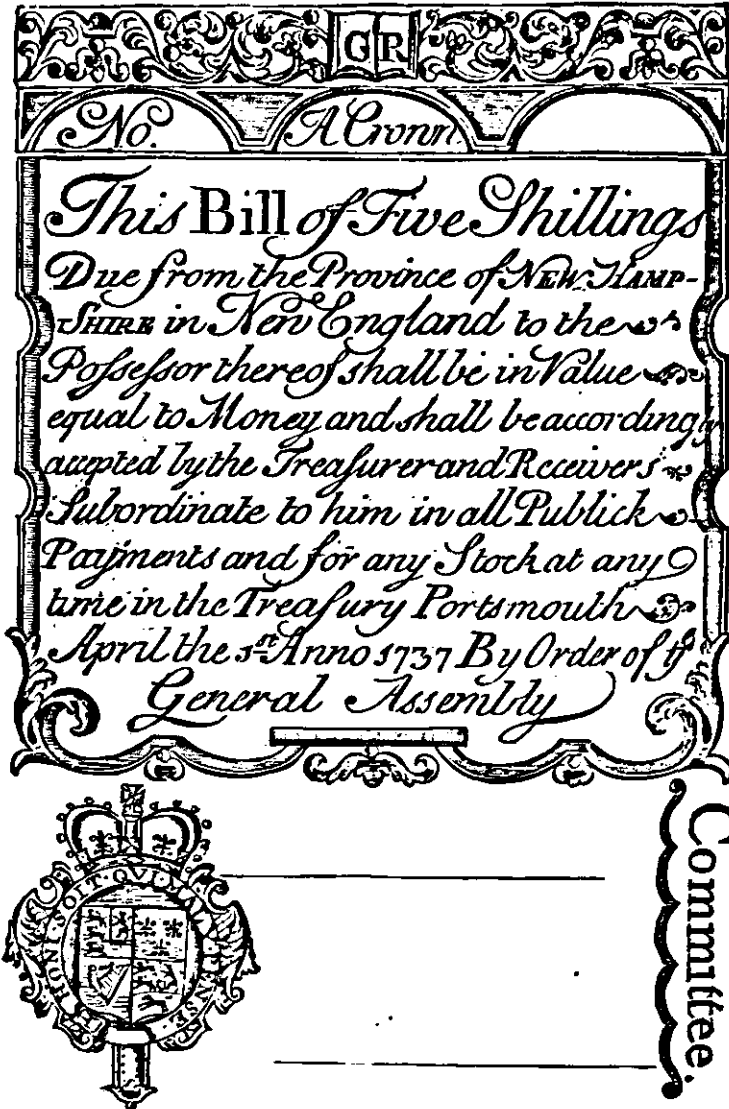 GR
No. A Crown
This Bill of Five Shillings
Due from the Province of NEW HAMP-
SHIRE in New England to the
Poſseſsor thereof shall be in Value
equal to Money and shall be accordingly
accepted by the Treaſurer and Receivers
Subordinate to him in all Publick
Payments and for any Stock at any
time in the Treaſury Portsmouth
April the 1st Anno 1737 By Order of ye
General Assembly
HONI·SOIT·QUI·MAL·Y·PENSE
Committee.